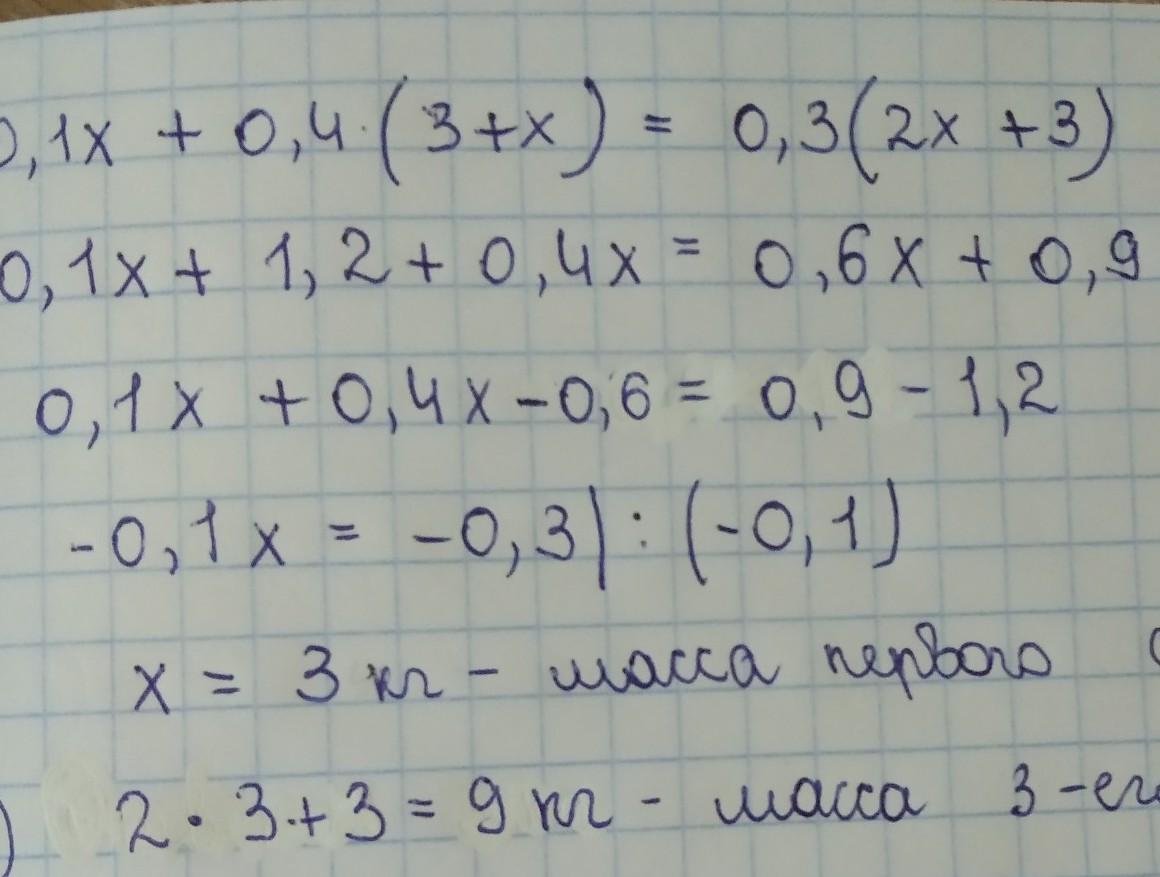 0,1x + 0,4·(3+x) = 0,3(2x +3)
0,1x + 1,2 + 0,4x = 0,6x + 0,9
0,1x + 0,4x - 0,6 = 0,9 - 1,2
-0,1x = -0,3|:(-0,1)
x = 3 кг - масса первого
) 2·3+3 = 9 кг - масса 3-ег